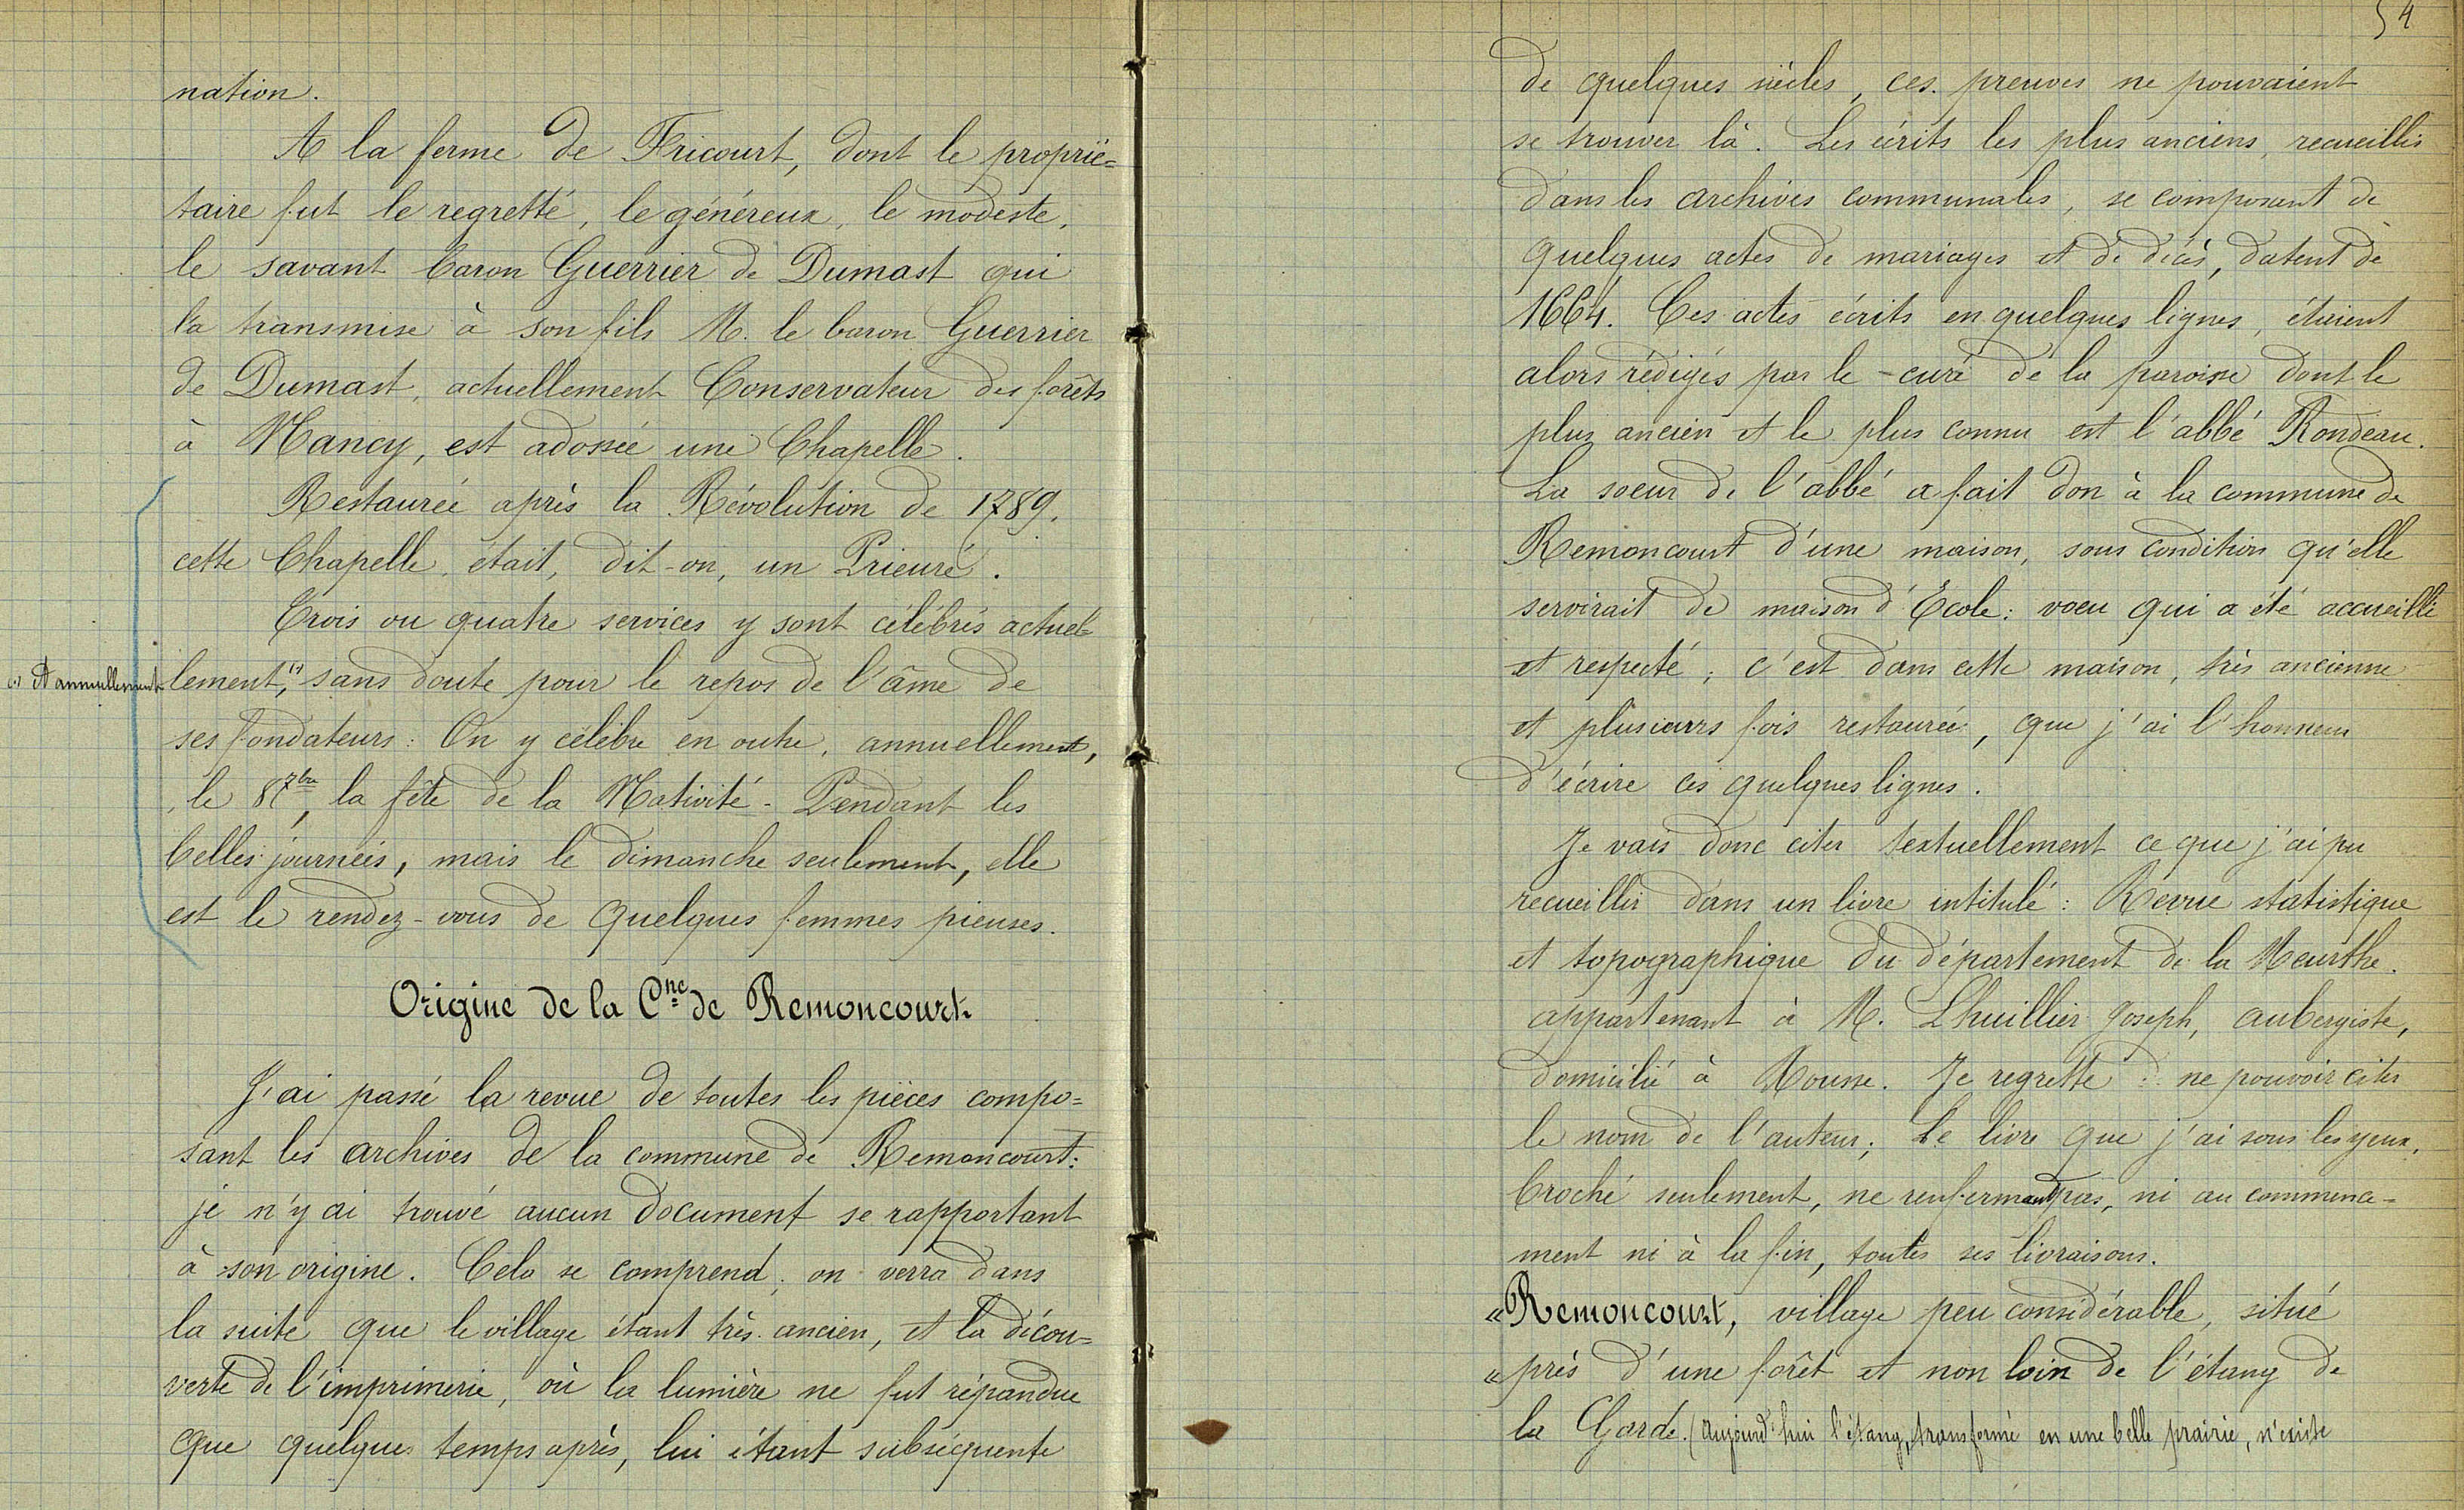 nation.
A la ferme de Fricourt, dont le proprié=
taire fut le regretté, le généreux, le modeste,
le savant baron Guerrier de Dumast qui
l'a transmise à son fils M. le baron Guerrier
de Dumast, actuellement Conservateur des forêts
à Nancy, est adossée une Chapelle.
Restaurée après la Révolution de 1789,
cette Chapelle était, dit-on, un Prieuré.
Trois ou quatre services y sont célébrés actuel=
(1) Et annuellement
lement,(1) sans doute pour le repos de l'âme de
ses fondateurs. On y célèbre en outre, annuellement,
le 8 7bre, la fête de la Nativité. Pendant les
belles journées, mais le dimanche seulement, elle
est le rendez-vous de quelques femmes pieuses.
Origine de la Cne de Remoncourt.
J'ai passé la revue de toutes les pièces compo=
sant les archives de la commune de Remoncourt:
je n'y ai trouvé aucun document se rapportant
à son origine. Cela se comprend; on verra dans
la suite que le village étant très ancien, et la décou=
verte de l'imprimerie, où la lumière ne fut répandue
que quelques temps après, lui étant subséquente
54
de quelques siècles, ces preuves ne pouvaient
se trouver là. Les écrits les plus anciens, recueillis
dans les archives communales, se composent de
quelques actes de mariages et de décès, datent de
1664. Ces actes écrits en quelques lignes, étaient
alors rédigés par le curé de la paroisse dont le
plus ancien et le plus connu est l'abbé Rondeau.
La soeur de l'abbé a fait don à la commune de
Remoncourt d'une maison, sous condition qu'elle
servirait de maison d'Ecole: voeu qui a été accueilli
et respecté; c'est dans cette maison, très ancienne
et plusieurs fois restaurée, que j'ai l'honneur
d'écrire ces quelques lignes.
Je vais donc citer textuellement ce que j'ai pu
recueillir dans un livre intitulé: Revue statistique
et topographique du département de la Meurthe.
appartenant à M. Lhuillier Joseph, aubergiste,
domicilié à Xousse. Je regrette de ne pouvoir citer
le nom de l'auteur; Le livre que j'ai sous les yeux,
broché seulement, ne renfermant pas, ni au commence-
ment ni à la fin, toutes ses livraisons.
«Remoncourt, village peu considérable, situé
«près d'une forêt et non loin de l'étang de
la Garde. (Aujourd'hui l'étang, transformé en une belle prairie, n'existe